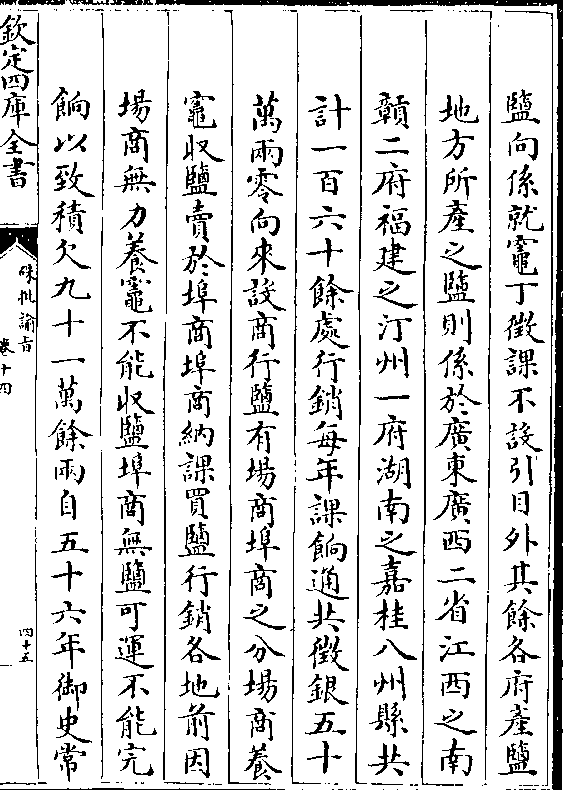 鹽向係就竈丁徵課不設引目外其餘各府產鹽
地方所產之鹽則係於廣東廣西二省江西之南
贛二府福建之汀州一府湖南之嘉桂八州縣共
計一百六十餘處行銷每年課餉通共徵銀五十
萬兩零向來設商行鹽有場商埠商之分場商養
竈收鹽賣於埠商埠商納課買鹽行銷各地前因
場商無力養竈不能收鹽埠商無鹽可運不能完
餉以致積欠九十一萬餘兩自五十六年御史常
欽定四庫全書
硃批諭旨
卷十四
四十五